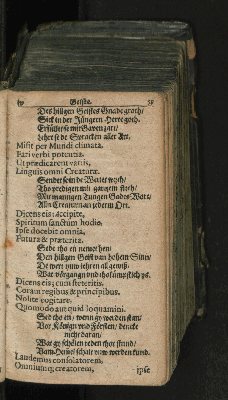 Geistes. 51
Des hilligen Geistes Gnade groth/
Sick in der Jüngern Herte goth.
Erfüllet se mit Gaven zart/
lehret se de Spraken aller Art.
Misit per Mundi climata,
Pari verbi potentia.
Ut prædicarent variis,
Linguis omni Creaturæ.
Sendet se in de Werlt
Tho predigen mit
Mit mannigen Tungen Gades Wort/
Allen Creaturen an jederm Ort.
Dicens eis: accipite,
Spiritum sanctum hodie,
Ipse docebit omnia,
Futura & præterita.
Sede tho en nemet hen/
Den hilligen Geist van hohem Sinn/
De wert juw lehren all gewiß/
Wat vörgangn und thokumpstich ys.
Dicens eis; cum steteritis,
Coram regibus & principibus.
Nolite cogitare,
Quomodo aut quid loquamini.
Sed tho en/ wenn gy werden stan/
Vor Könign und Försten/ dencket
nicht daran/
Wat gy schölen reden thor stund/
Laudemus consolatorem,
Omniumq; creatorem,
ipse